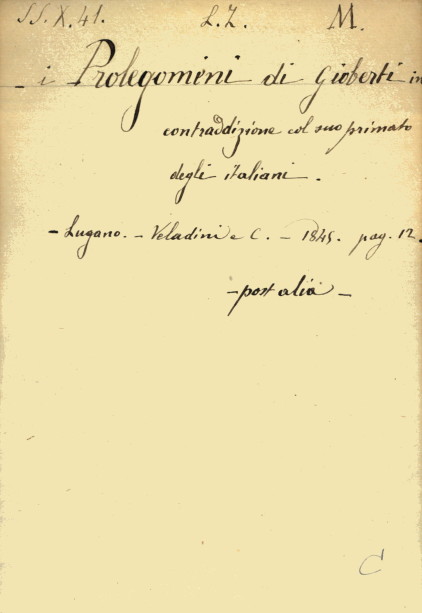 SS. X. 41. L. Z. M.
- i Prolegomini di Gioberti in
contraddizione col suo primato
degli italiani.
- Lugano. - Veladini e C. - 1845. pag. 12.
- post alia -
C